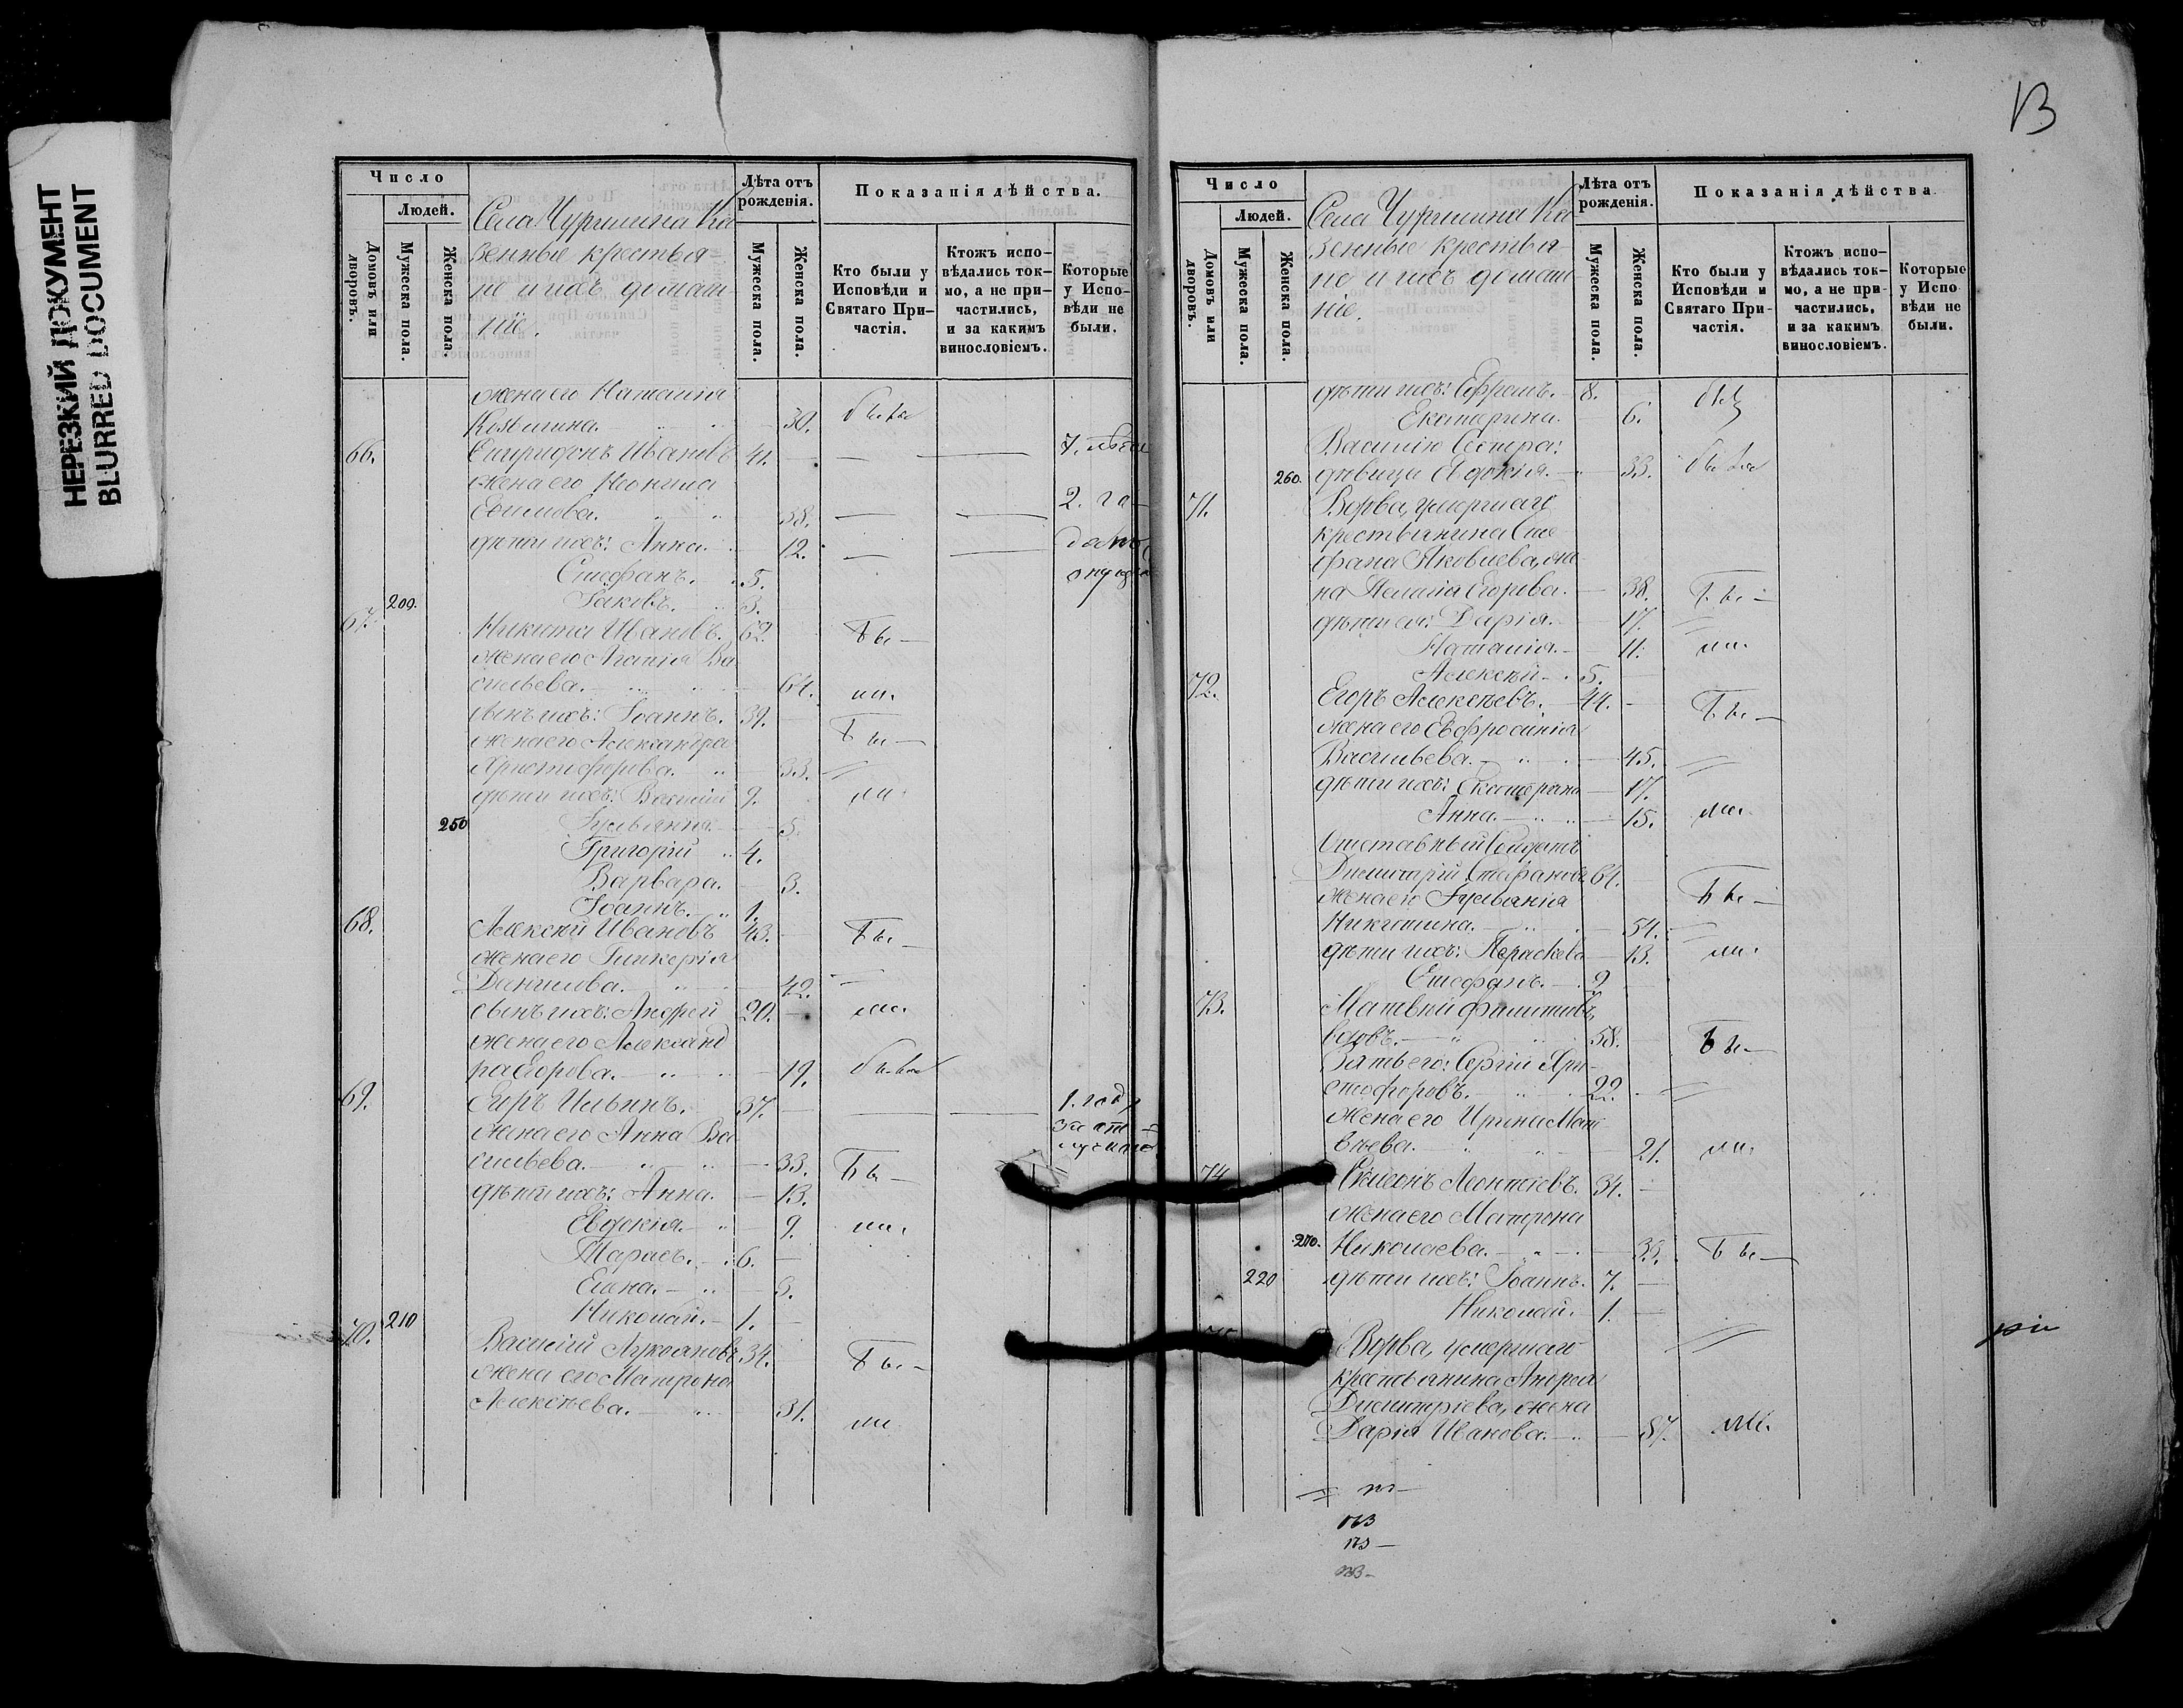 НЕРЕЗКИЙ ДОКУМЕНТ
BLURRED DOCUMENT
Число
Людей.
Домовъ или дворовъ.
Мужеска пола.
Женска пола.
Села Чурилина Ка
зенные крестья-
не и ихъ домаш-
ніе.
Лѣта отъ рожденія.
Мужеска пола.
Женска пола.
Показанія дѣйства.
Кто были у Исповѣди и Святаго При-частія.
Ктожъ испо-вѣдались ток-мо, а не при-частились, и за какимъ винословіемъ.
Которые у Испо-вѣди не были.
жена его Наталія
Козьмина. 30. была
66. Спиридонъ Ивановъ 41. — —
жена его Неонила
2. го-
Ефимова. 38. — —
дѣти ихъ: Анна. 12. — —
Стефанъ. 5.
209. Іаковъ. 3.
67. Никита Ивановъ. 62. Бы—
жена его Агапія Ва
сильева. 64. ли.
сынъ ихъ: Іоаннъ. 39.
жена его Александра Бы—
Христофорова. 33.
дѣти ихъ: Василій 9. ли.
250 Іуліанія. 5.
Григорій 4.
Варвара. 3.
Іоаннъ. 1.
68. Алексій Ивановъ 43. Бы—
жена его Гликерія
Данилова. 42.
сынъ ихъ: Андрей 20. ли.
жена его Александ
ра Егорова. 19. была
69. Егоръ Ильинъ. 37. — — 1. годъ
жена его Анна Ва
сильева. 33. Бы—
дѣти ихъ: Анна. 13.
Евдокія. 9. ли.
Тарасъ. 6.
Елена. 3.
210 Николай. 1.
70. Василій Лукояновъ 34. Бы—
жена его Матрона
Алексѣева. 31. ли
13
Число
Людей.
Домовъ или дворовъ.
Мужеска пола.
Женска пола.
Села Чурилина Ка
зенные крестья-
не и ихъ домаш
ніе.
Лѣта отъ рожденія.
Мужеска пола.
Женска пола.
Показанія дѣйства.
Кто были у Исповѣди и Святаго При-частія.
Ктожъ испо-вѣдались ток-мо, а не при-частились, и за какимъ винословіемъ.
Которые у Испо вѣди не были.
дѣти ихъ: Ефремъ. 8.
Екатерина. 6.
Василію Сестра:
260. дѣвица Евдокія. 33. была
71. Вдова, умершаго
крестьянина Сте
фана Яковлева, же
на Пелагія Егорова. 38. Бы—
дѣти ея: Дарія. 17.
Наталія. 11. ли.
Алексѣй 5.
72. Егоръ Алексѣевъ. 44. Бы—
жена его Евфросинія
Васильева. 45.
дѣти ихъ: Екатерина 17.
Анна. 15. ли.
Отставный Солдатъ
Димитрій Стефановъ 61.
жена его Іуліанія Бы—
Никитина. 54.
дѣти ихъ: Параскева 13. ли.
Стефанъ. 9
73. Матвѣй
58. Бы—
Зять его: Сергій Хри-
стофоровъ. 22.
жена его Ирина Мат
вѣева. 21. ли.
74 Симеонъ Леонтіевъ. 34.
жена его Матрона
270. Николаева. 33. Бы—
220 дѣти ихъ: Іоаннъ. 7.
Николай. 1.
Вдова, умершаго
крестьянина Андрея
Димитріева, жена
Дарія Иванова. 57. ли.